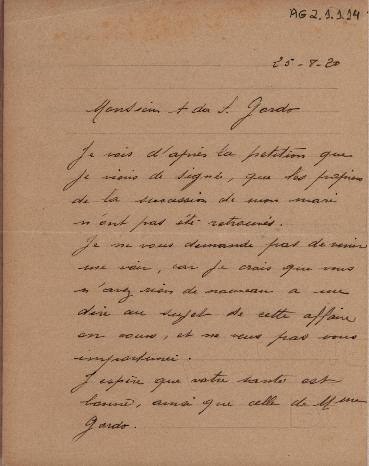 AG2.1.1.14
25-8-20
Monsieur A da S. Gordo
Je vois d'après la petition que
je viens de signé, que les papiers
de la succession de mon mari
n'ont pas été retrouvés.
Je ne vous demande pas de venir
me voir, car je crois que vous
n'avez rien de nouveau a me
dire au sujet de cette affaire
en cours, et ne veux pas vous
importuner.
J'espère que votre santé est
bonne, ainsi que celle de Mme
Gordo.